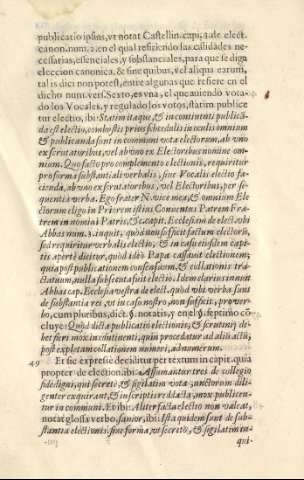 publicatio ipsius, vt notat Castellin. cap. 2. de elect.
canon. num. 2. en el qual refiriendo las calidades ne-
cessarias, essenciales, y substanciales, para que se diga
eleccion canonica, & sine quibus, vel aliqua earum,
talis dici non potest, entre algunas que refiere en el
dicho num. vers. Sexto, es vna, el que auiendo vota-
do los Vocales, y regulado los votos, statim publice
tur electio, ibi: Statim itaque, & in continenti publicã
da est electio, combustis prius schedulis in oculis omnium
& publicanda sunt in communi vota electorum, ab vno
ex scrutatoribus, vel ab vno ex Electoribus nomine om-
nium. Quo facto pro complemento electionis, requiritur
pro forma substantiali verbalis, sive Vocalis electio fa-
cienda, ab vno ex scrutatoribus, vel Electoribus, per se-
quentia verba. Ego frater N. vice mea, & omnium Ele
ctorum eligo in Priorem istius Conuentus Patrem Fra-
trem in nomini Patris, &c. capit. Ecclesia de elect. vbi
Abbas num. 3. inquit, quòd non sufficit factum electorũ,
sed requiritur verbalis electio, & in casu istius en capi-
tis apertè dicitur, quòd ideò Papa cassauit electionem;
quia post publicationem consensuum, & collationis tra-
ctatum, nulla subsecuta fuit electio. Idem clarius innuit
Abbas cap. Ecclesia vestra de elect. quòd vbi verba sunt
de substantia rei, vt in casu nostro, non sufficit,
bo, cum pluribus, dict. §. notatis, y en el §. septimo cõ
cluye: Quòd dicta publicatio electionis, & scrutinij de-
bet fieri mox in continenti, quin procedatur ad alium actũ,
post expletam collationem numeri, ad numerum.
49 Et sic expresse deciditur per textum in capit. quia
propter de election. ibi: Assumantur tres de collegio
fide digni, qui secretè, & sigilatim vota cunctorum dili-
genter exquirant, & in scriptis redacta, mox publicen-
tur in communi. Et ibi: Aliter facta electo non valeat,
notat glossa verbo, sanior, ibi: Ista quidem sunt de sub-
stantia electionis, sine forma, vt secretè, & sigilatim in-
qui-